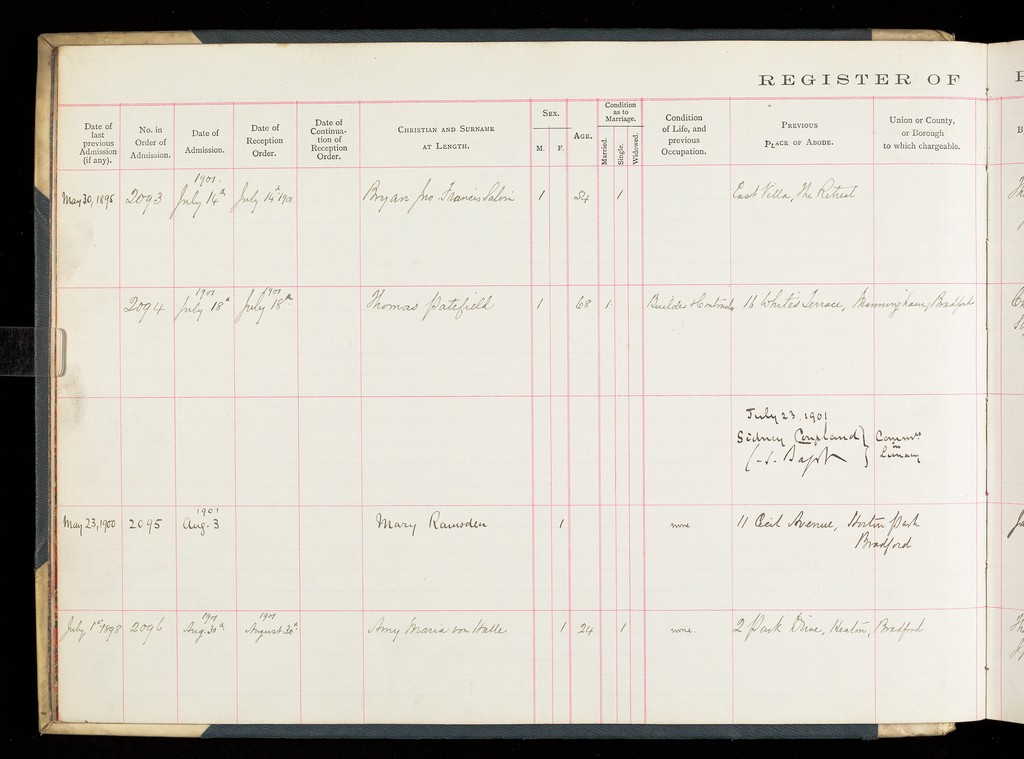 REGISTER OF
Date of last previous Admission (if any).
No. in Order of Admission.
Date of Admission.
Date of Reception Order.
Date of Continua- tion of Reception Order.
CHRISTIAN AND SURNAME AT LENGTH.
SEX.
M. F.
AGE.
Condition as to Marriage.
Married. Single. Widowed.
Condition of Life, and previous Occupation.
PREVIOUS PLACE OF ABODE.
Union or County, or Borough to which chargeable.
1901.
May 30, 1895 2093 July 14th July 14th 1901 Bryan Jno Francis 1 54 1 East Villa, The Retreat
1901 1901
2094 July 18th July 18th Thomas Patefield 1 68 1 Builder & Contractor 16 White's Terrace, Manningham, Bradford
July 23. 1901
Sidney Coupland
Commrs in Lunacy
1901
May 23, 1900 2095 Aug. 3 Mary Ramsden 1 none 11 Cecil Avenue, Horton Park
Bradford
1901 1901
July 1st 1898 2096 Aug. 30th August 30th Amy Maria von Halle 1 24 1 none. 2 Park Drive, Heaton, Bradford